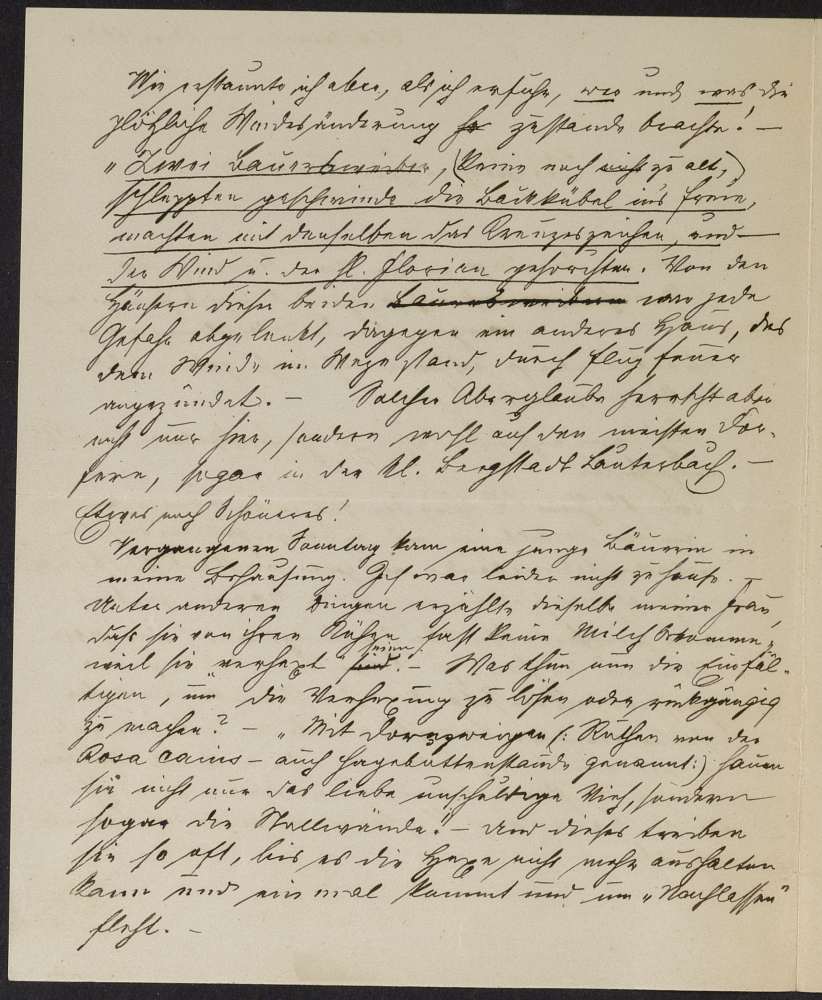 Wie erstaunte ich aber, als ich erfuhr, wer und was die
plötzliche Windesänderung zustande brachte! —
„Zwei Bauersweiber, (keine noch nicht zu alt,)
schleppten geschwinde die Backkübel in's Freie,
machten mit denselben das Kreuzeszeichen, und —
der Wind u. der hl. Florian gehorchten. Von den
Häusern dieser beiden Bauersweibern war jede
Gefahr abgelenkt, dagegen ein anderes Haus, das
dem Winde im Wege stand, durch Flugfeuer
angezündet. — Solcher Aberglaube herrscht aber
nicht nur hier, sondern wohl auf den meisten Dör-
fern, sogar in der kl. Bergstadt Lauterbach. —
Etwas noch Schöneres!
Vergangenen Sonntag kam eine junge Bäuerin in
meine Behausung. Ich war leider nicht zu hause. —
Unter anderen Dingen erzählte dieselbe meiner Frau,
daß sie von ihren Kühen fast keine Milch bekomme,
weil sie verhext sind seien. — Was thun nun die Einfäl-
tigen, um die Verhexung zu lösen oder rückgängig
zu machen? — „Mit Dornzweigen (: Ruthen von der
Rosa canis — auch Hagebuttenstaude genannt :) hauen
sie nicht nur das liebe unschuldige Vieh, sondern
sogar die Stallwände." — Und dieses treiben
sie so oft, bis es die Hexe nicht mehr aushalten
kann und einmal kommt und um „Nachlassen"
fleht. —